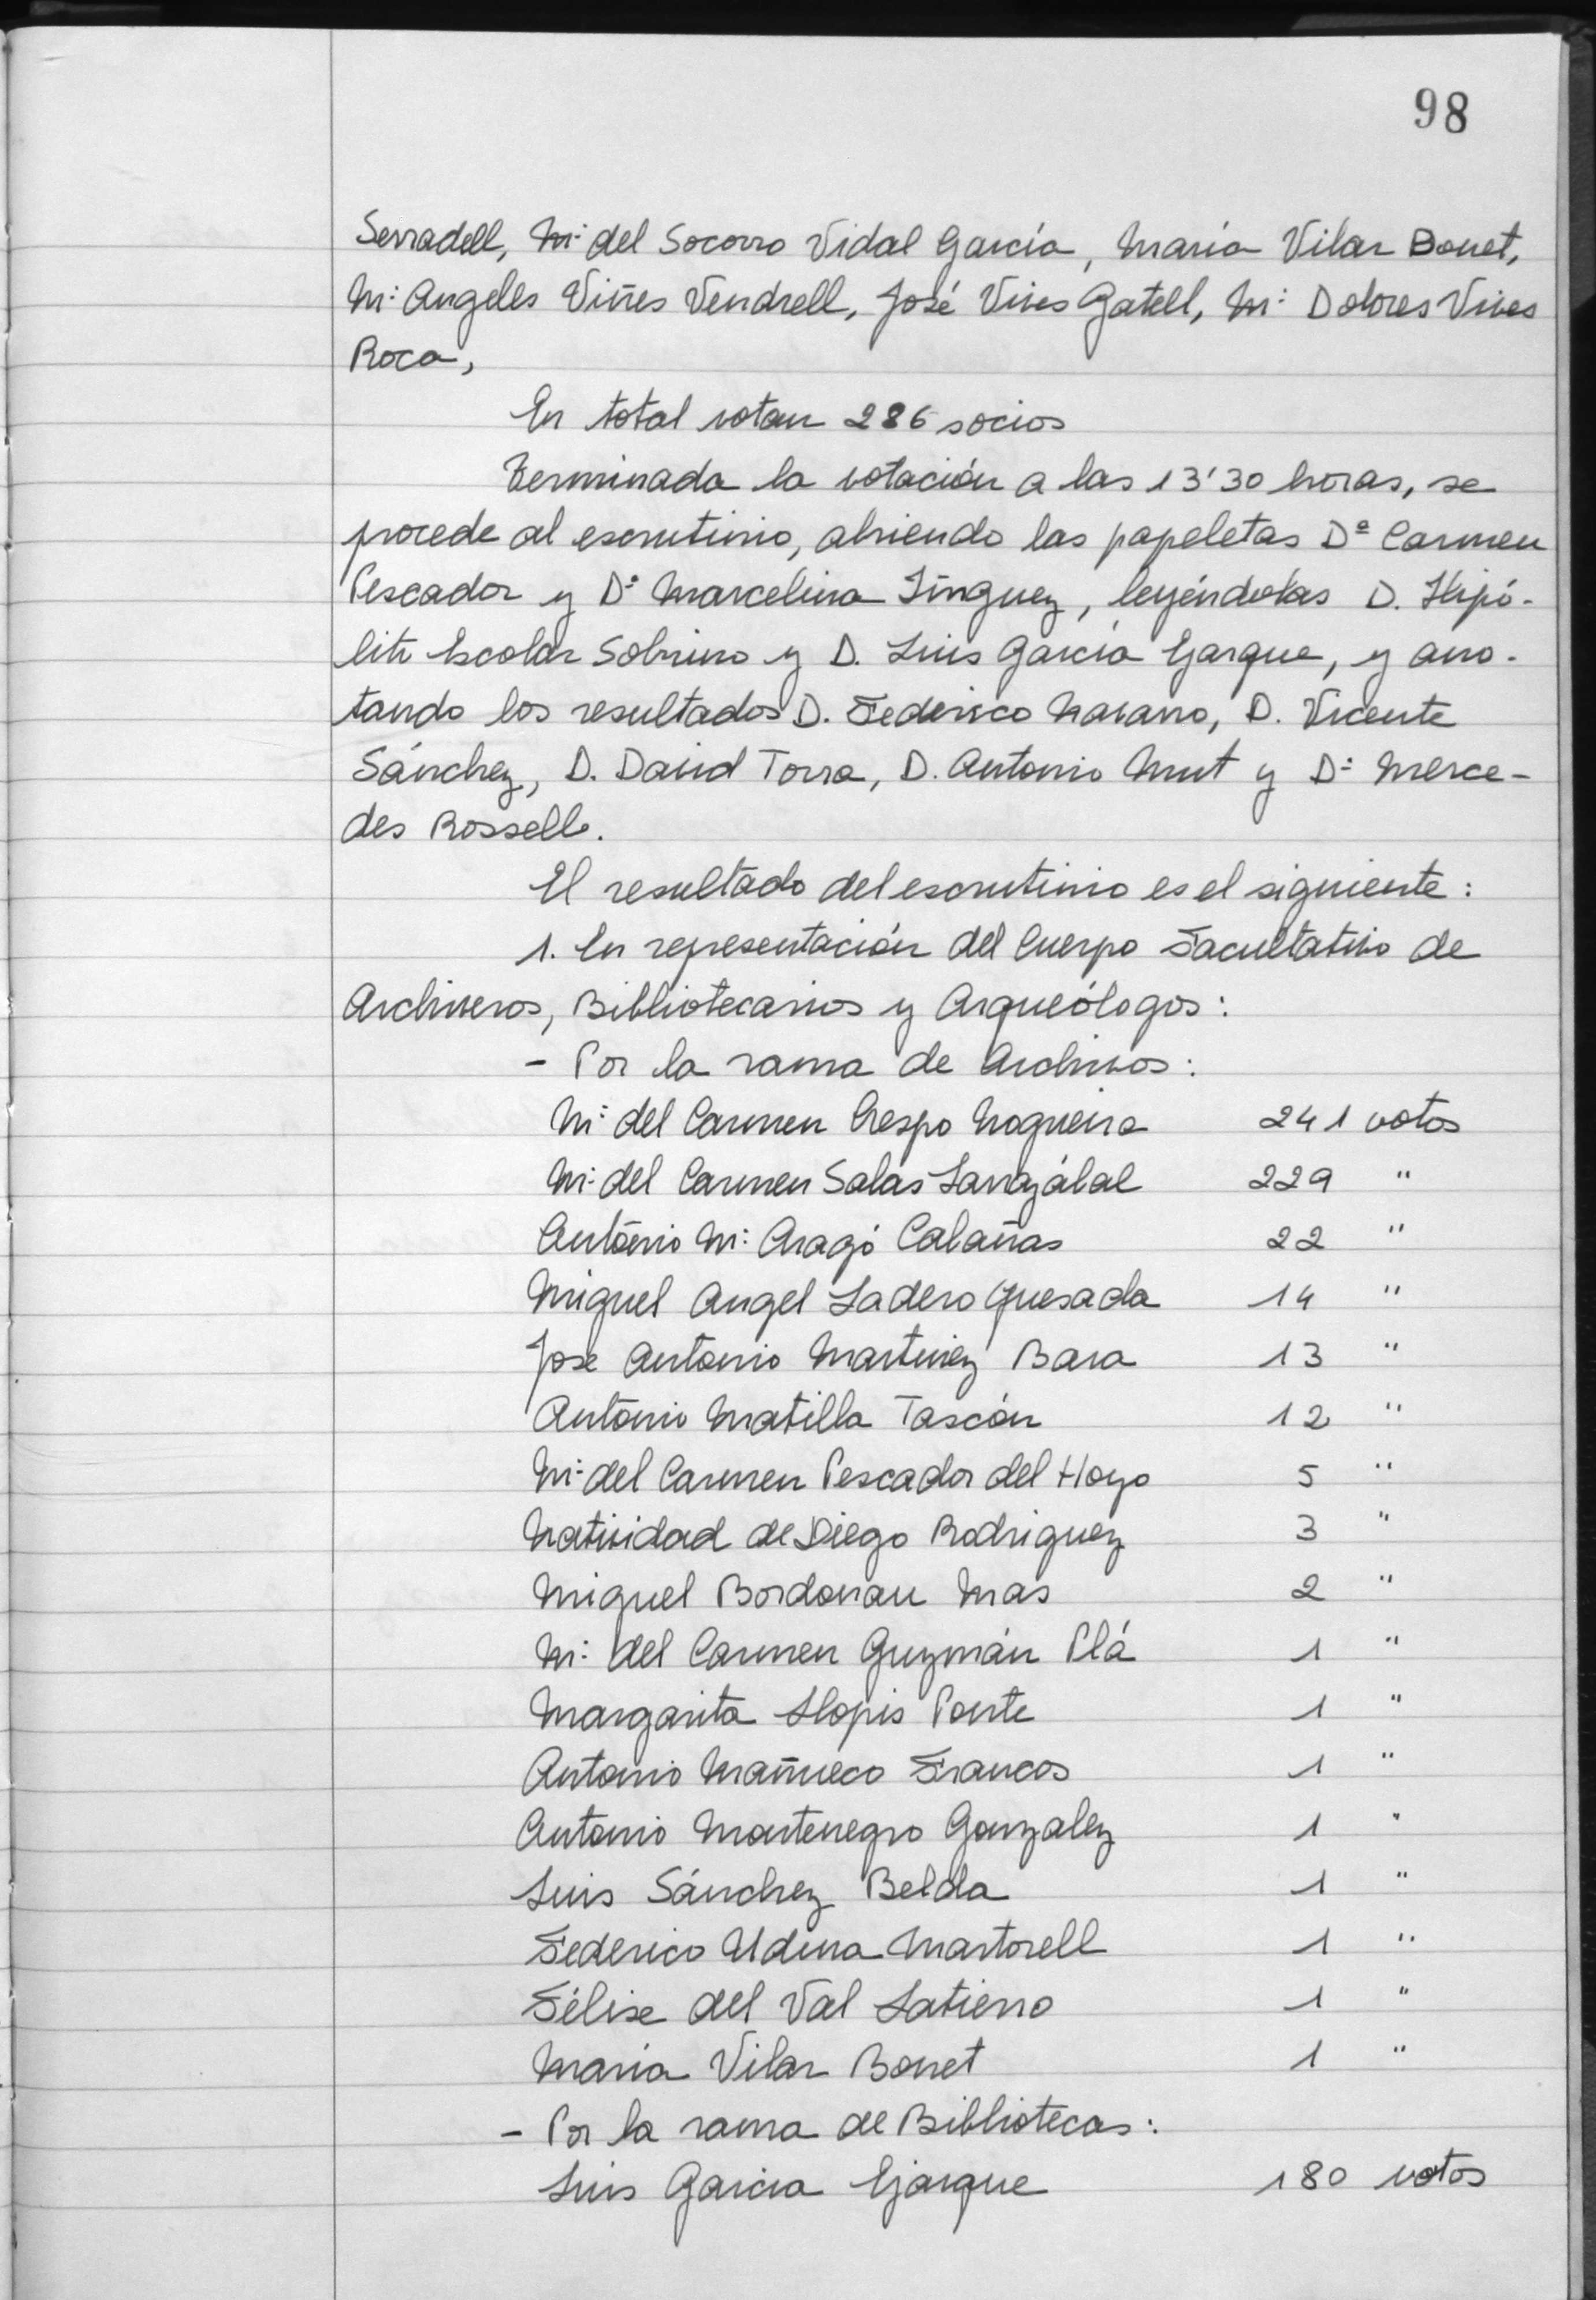 98
Serradell, Mª del Socorro Vidal García, María Vilar Bonet,
Mª Angeles Viñes Vendrell, José Vives Gatell, Mª Dolores Vives
Roca,
En total votan 286 socios
Terminada la votación a las 13'30 horas, se
procede al escrutinio, abriendo las papeletas Dª Carmen
Pescador y Dª Marcelina Iñguez, leyéndolas D. Hipó-
lito Escolar Sobrino y D. Luis García Ejarque, y ano-
tando los resultados D. Federico Navarro, D. Vicente
Sánchez, D. David Torra, D. Antonio Mut y Dª Merce-
des Rosselló.
El resultado del escrutinio es el siguiente:
1. En representación del Cuerpo Facultativo de
Archiveros, Bibliotecarios y Arqueólogos:
- Por la rama de Archivos:
Mª del Carmen Crespo Nogueira 241 votos
Mª del Carmen Salas Larrazábal 229 "
Antonio Mª Aragó Cabañas 22 "
Miguel Angel Ladero Quesada 14 "
Jose Antonio Martinez Bara 13 "
Antonio Matilla Tascón 12 "
Mª del Carmen Pescador del Hoyo 5 "
Natividad de Diego Rodriguez 3 "
Miguel Bordonau Mas 2 "
Mª del Carmen Guzmán Plá 1 "
Margarita Llopis Ponte 1 "
Antonio Mañueco Francos 1 "
Antonio Montenegro Gonzalez 1 "
Luis Sánchez Belda 1 "
Federico Udina Martorell 1 "
Félise del Val Latierro 1 "
María Vilar Bonet 1 "
- Por la rama de Bibliotecas:
Luis Garcia Ejarque 180 votos